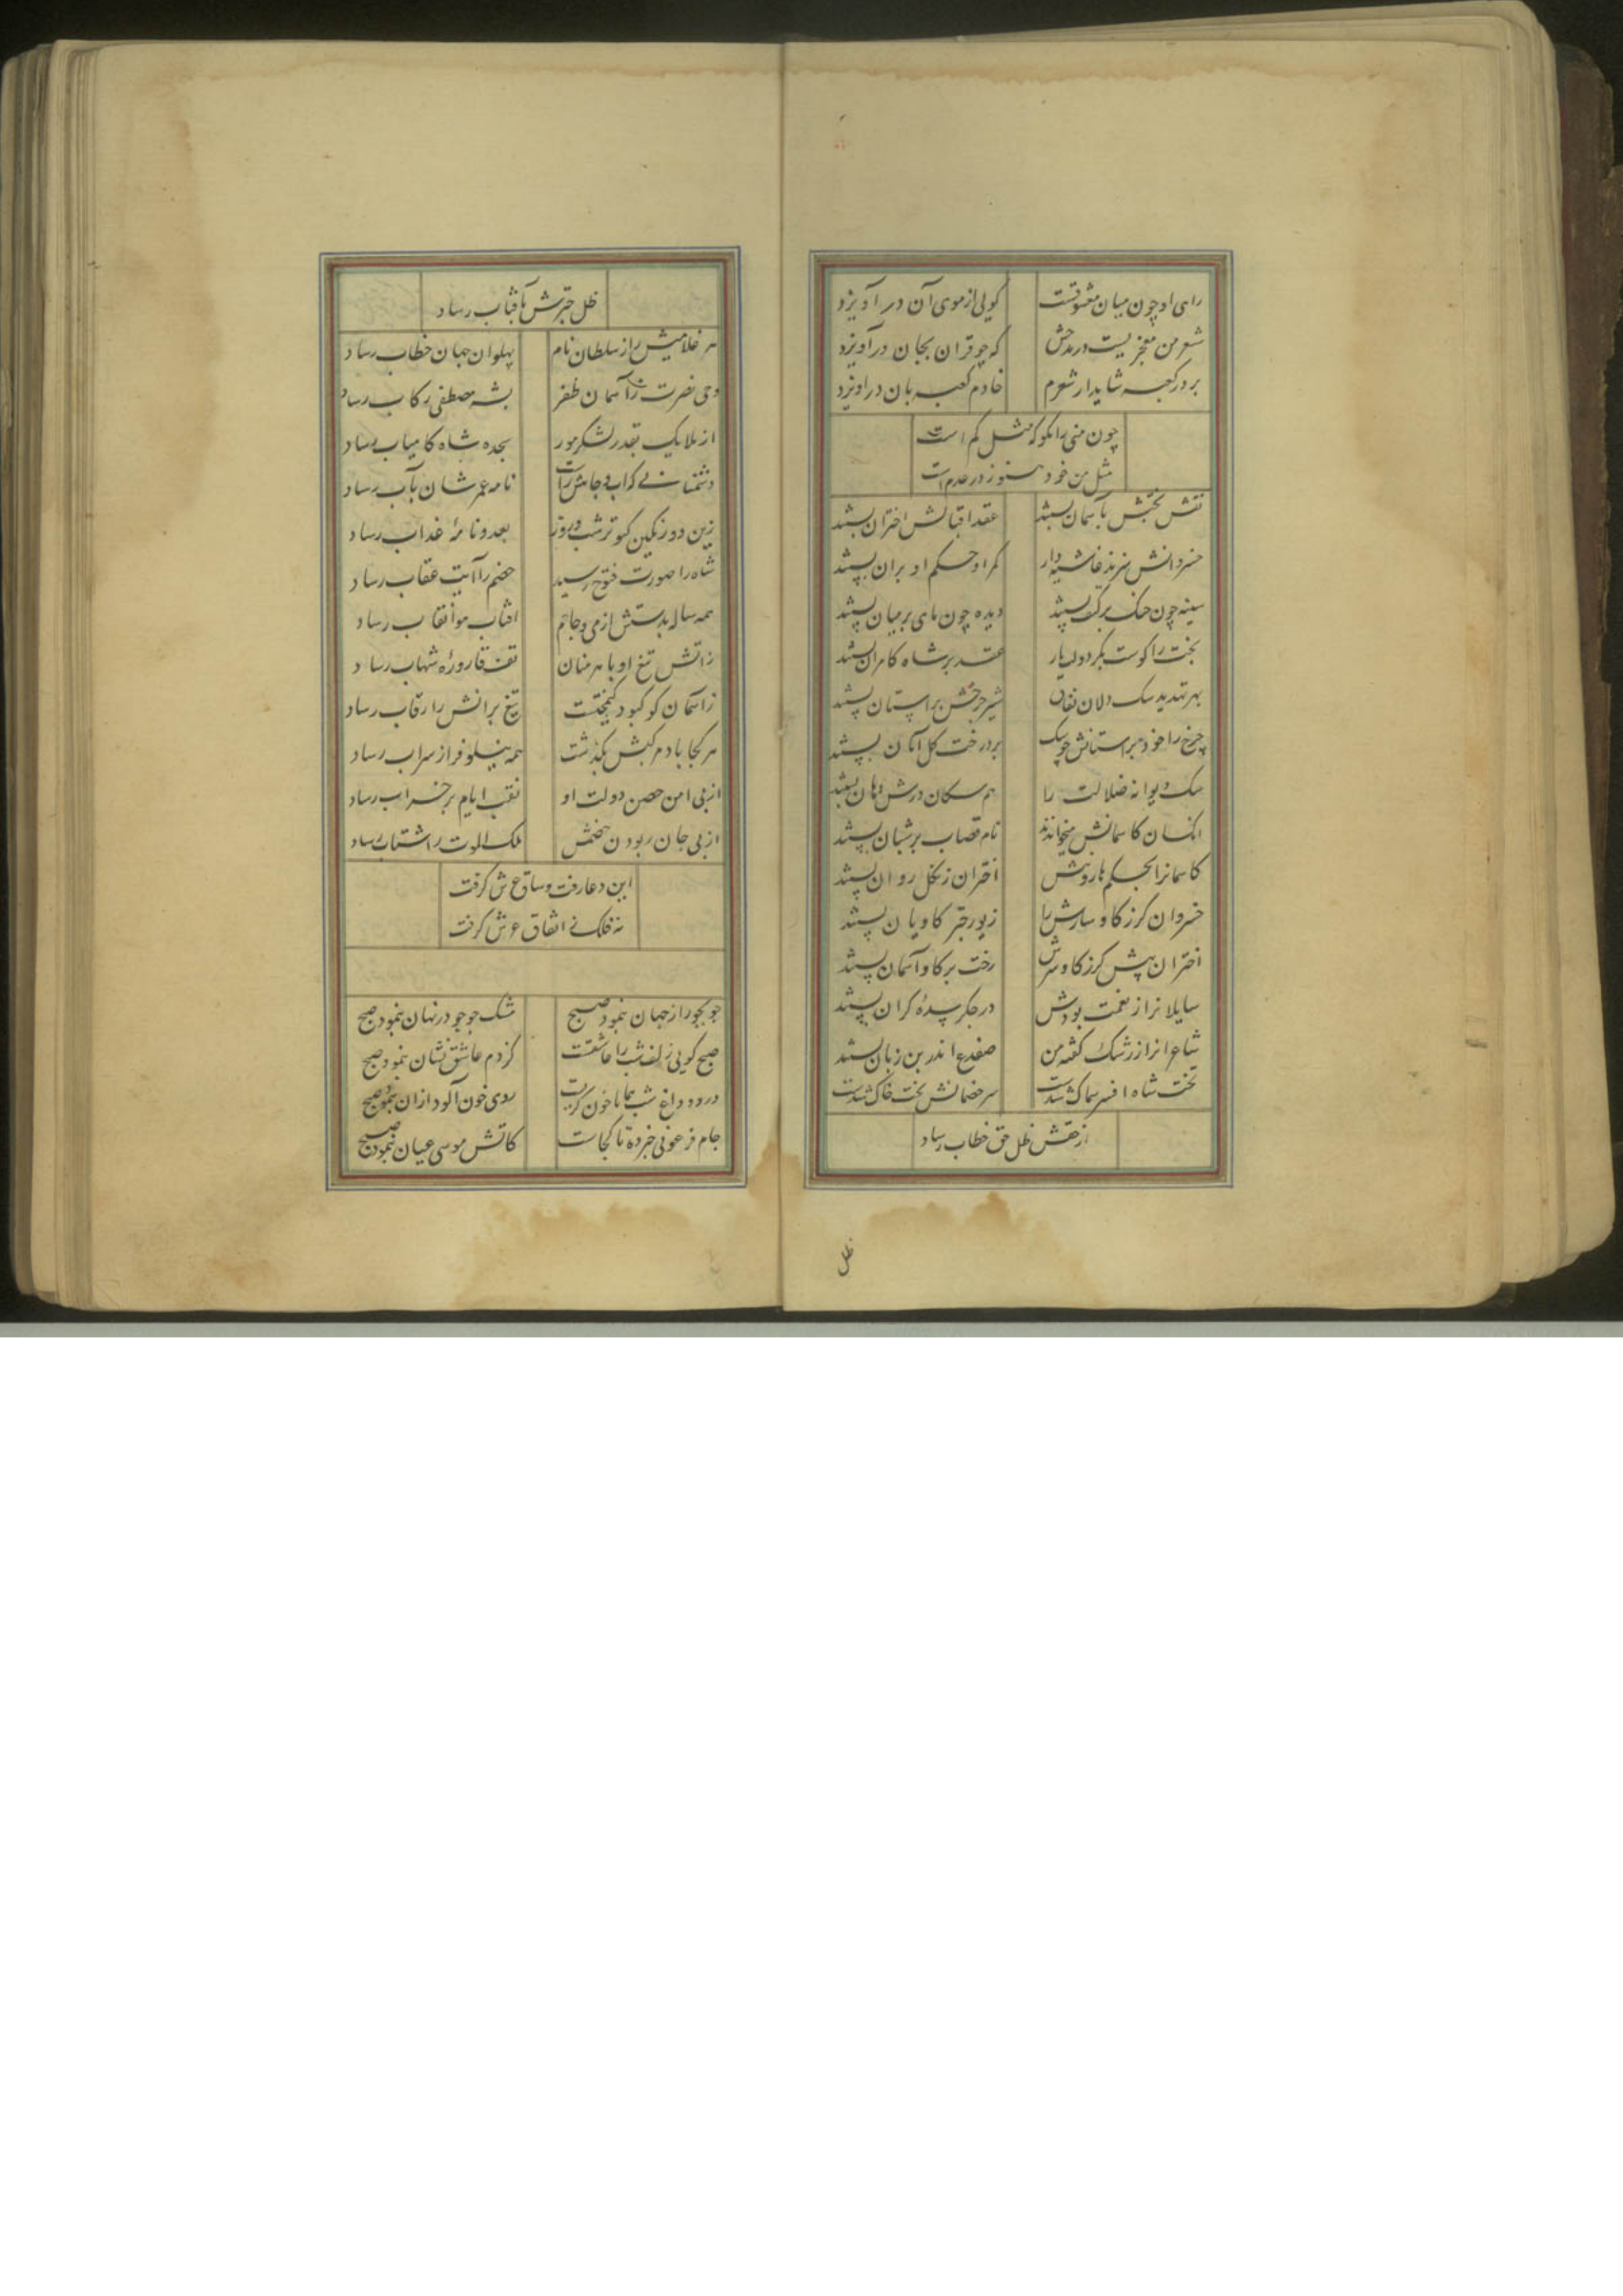 رای او چون میان معشوقست
کویی از موی آن در آویزد
شعر من معجزیست در مدحش
که چو قران بجان در آویزد
بر در کعبه شاید ار شعرم
خادم کعبه بان در اویزد
چون منی را مکو که مثل کم است
مثل من خود هنوز در عدم است
نقش بختش بآسمان بستند
عقد اقبالش اختران بستند
خسروانش سزند غاشیه دار
کمر او حکم او بران بستند
سینه چون جنک بر کتف بستند
دیده چون نای بر میان بستند
بخت را کوست بکر دولت یار
عقد بر شاه کامران بستند
بهر تهدید سک دلان نفاق
شیر چرخش بر استان بستند
چرخ را خود بر استانش چو سک
بر درخت کل امان بستند
سک دیوانه ضلالت را
هم سکان درش دهان بستند
انکسان کاسمانش میخوانند
نام قصاب بر شبان بستند
کاسمانرا بحکم هارونیش
اختران زنکل روان بستند
خسروان کرز کاو سارش را
زیور چتر کاویان بستند
اختران پیش کرز کاو سرش
رخت بر کاو آسمان بستند
سایلانرا ز نعمت جودش
در جکر سده کران بستند
شاعرانرا ز رشک کفته من
ضفدع اندر بن زبان بستند
تخت شاه افسر سماک شدست
سر خصمانش تخت خاک شدست
از حقش ظل حق خطاب رساد
ظل
ظل چترش بآفتاب رساد
هر غلامیش را ز سلطان نام
پهلوان جهان خطاب رساد
وحی نصرت ز آسمان ظفر
بشه مصطفی رکاب رساد
از ملایک بقدر لشکر مور
بجده شاه کامیاب رساد
دشمنانی که اب و جاهش راست
نامه عمرشان بآب رساد
زین دو رنکین کبوتر شب و روز
بعدو نامهٔ عذاب رساد
شاه را صورت فتوح رسید
خصم را آیت عقاب رساد
همه ساله بدستش از می و جام
افتاب هوا نقاب رساد
زاتش تیغ او باهرمنان
تف قارورهٔ شهاب رساد
زاسمان کو کبود کیمختست
تیغ برانش را قراب رساد
هر کجا باد مرکبش بکذشت
همه نیلوفر از سراب رساد
از پی امن حصن دولت او
نقب ایام بر خراب رساد
از پی جان ربودن خصمش
ملک الموت را شتاب رساد
این دعا رفت و ساق عرش کرفت
نه فلک نی اتفاق عرش کرفت
جو بجو راز جهان بنمود صبح
مشک جو جو در نهان بنمود صبح
صبح کویی زلف شب را عاشقست
کز دم عاشق نشان بنمود صبح
در وداع شب همانا خون کریست
روی خون آلود ازان بنمود صبح
جام فرعونی خبر ده تا کجاست
کاتش موسی عیان بنمود صبح